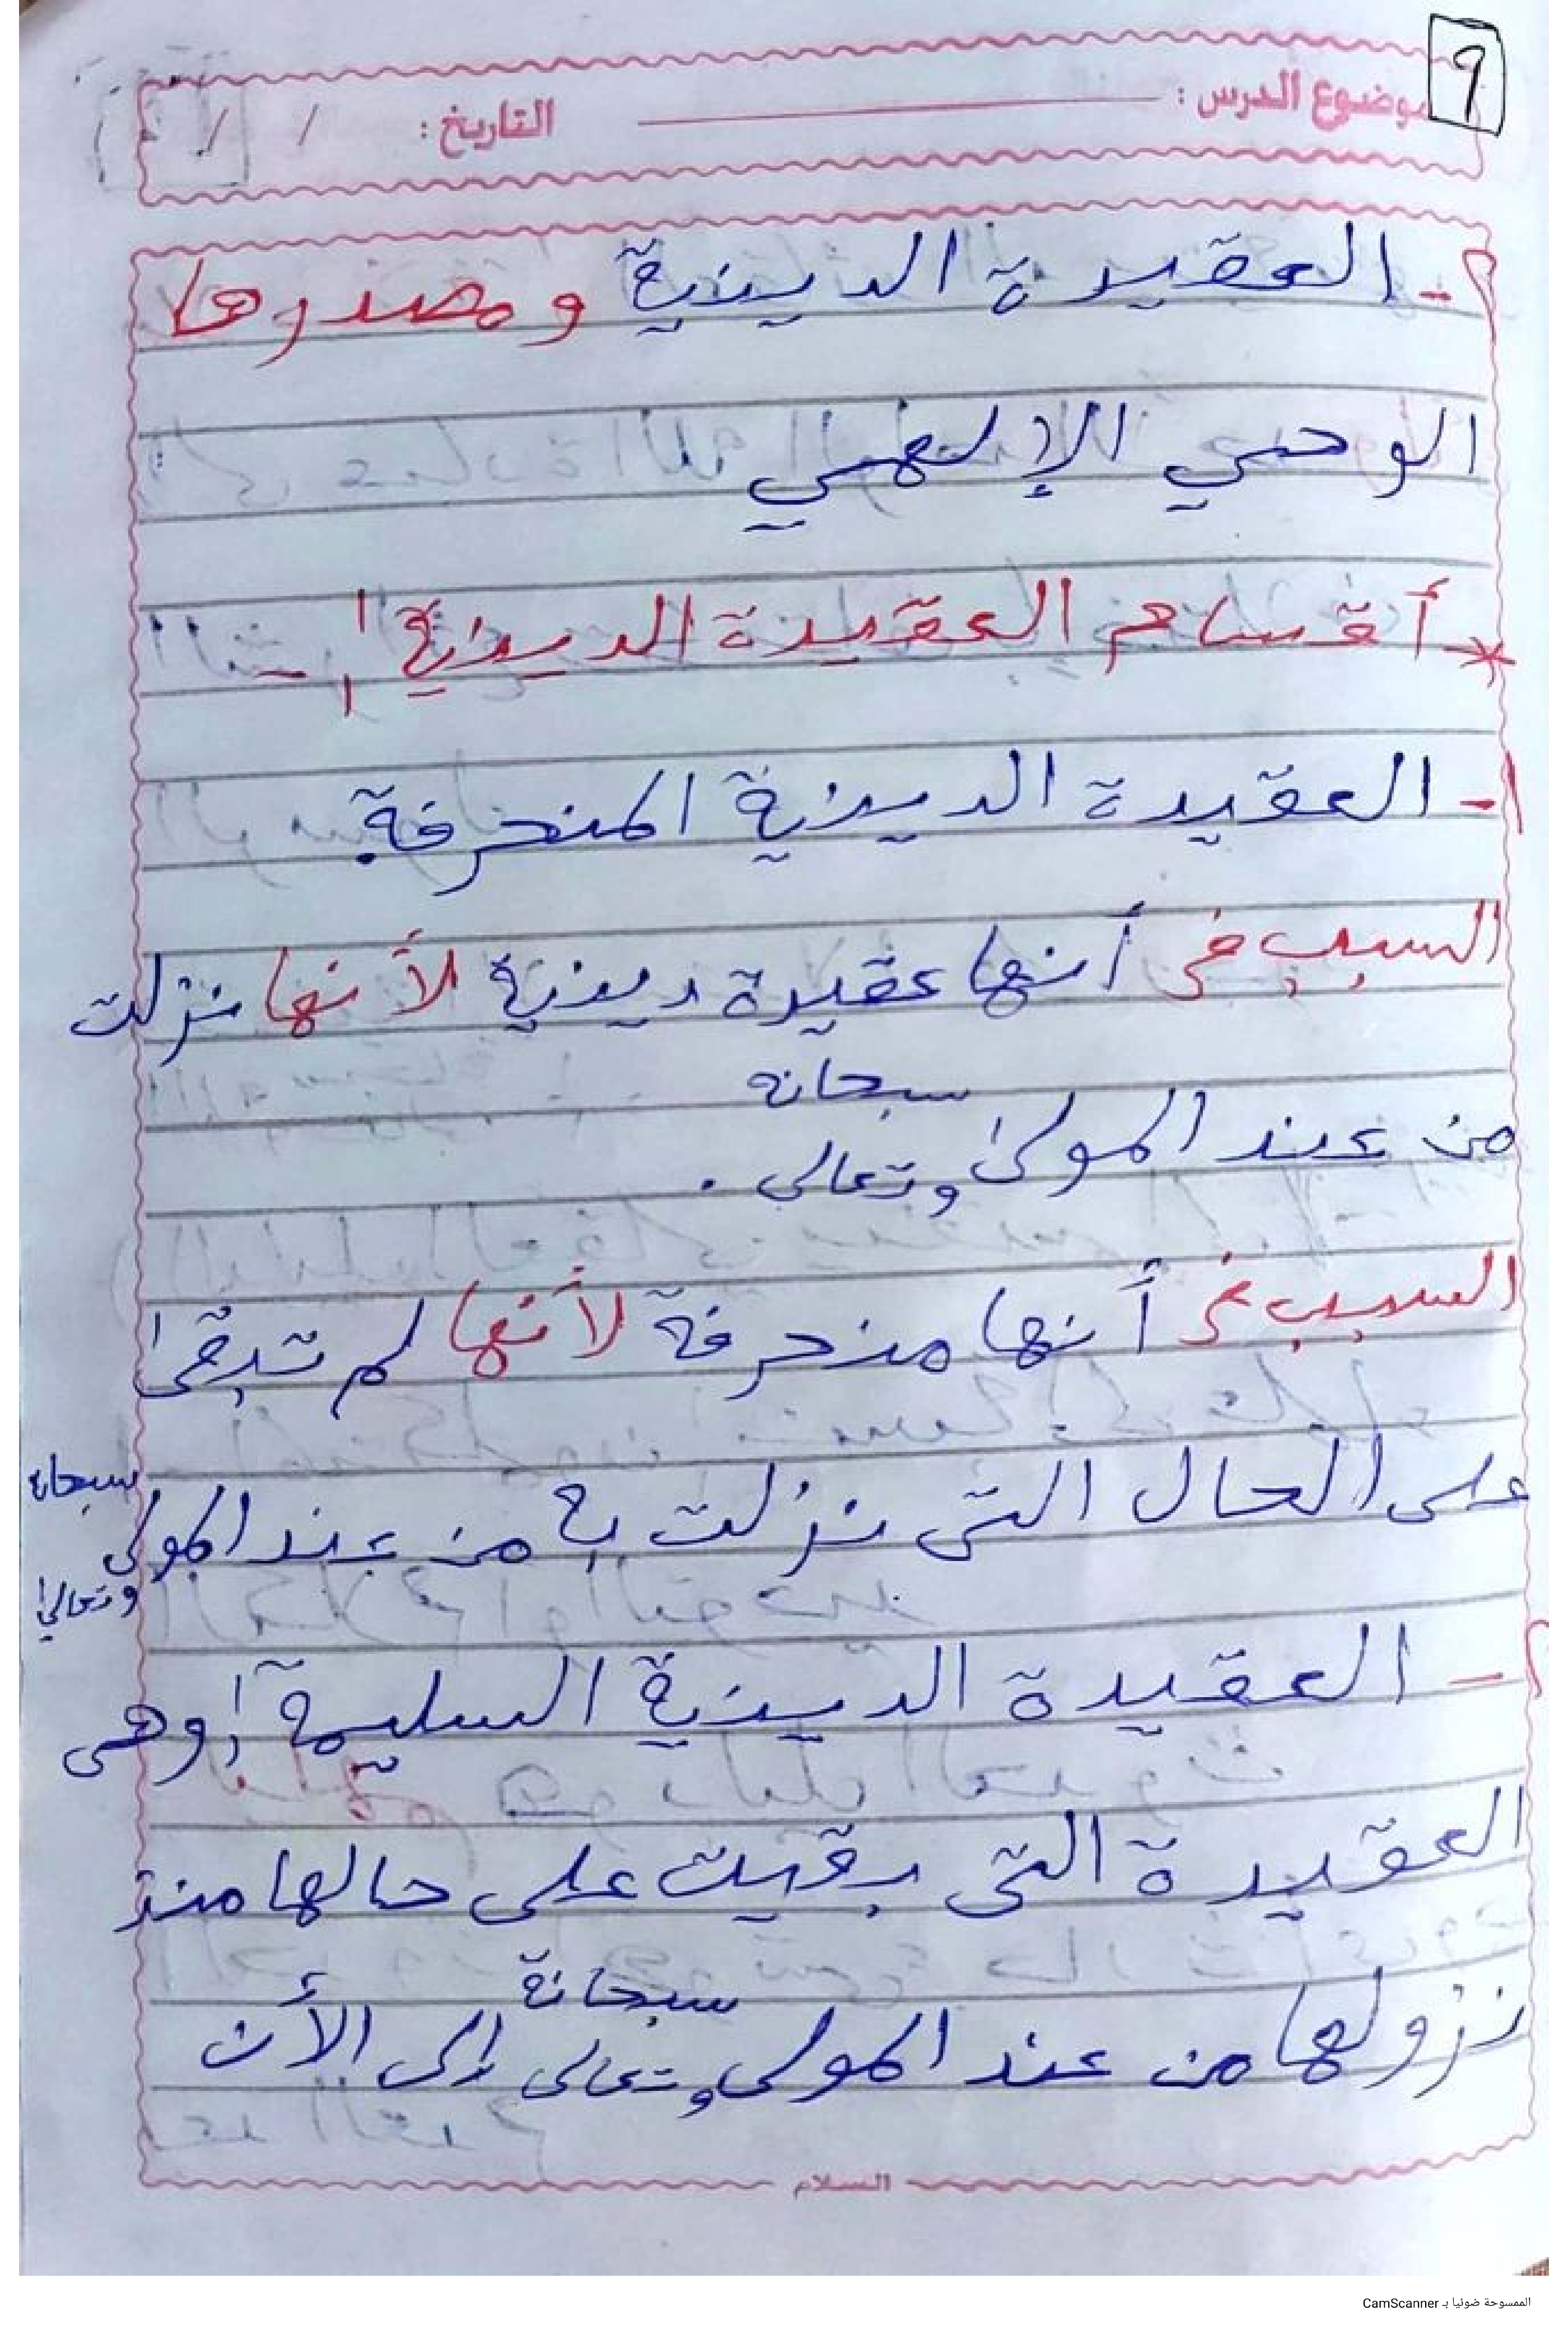 ٩
موضوع الدرس : التاريخ : / /
٢- العقيدة الدينية ومصدرها
الوحي الإلهي
* أقسام العقيدة الدينية :-
١- العقيدة الدينية المنحرفة.
السبب في أنها عقيدة دينية لأنها نزلت
من عند المولى سبحانه وتعالى .
السبب في أنها منحرفة لأنها لم تبقى
على الحال التى نزلت به من عند المولى سبحانه وتعالى
٢- العقيدة الدينية السليمة: وهى
العقيدة التى بقيت على حالها منذ
نزولها من عند المولى سبحانة وتعالى إلى الأن
السلام
الممسوحة ضوئيا بـ CamScanner